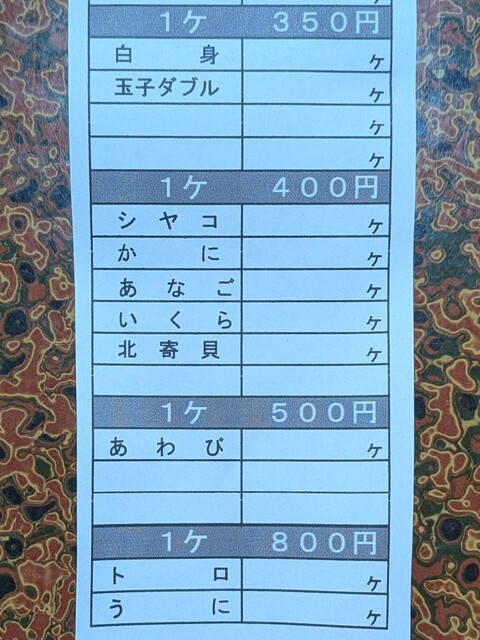 1ケ 350円
白身 ケ
玉子ダブル ケ
ケ
ケ
1ケ 400円
シヤコ ケ
かに ケ
あなご ケ
いくら ケ
北寄貝 ケ
1ケ 500円
あわび ケ
1ケ 800円
トロ ケ
うに ケ